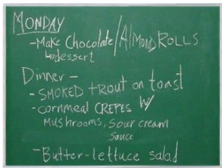 MONDAY
-Make Chocolate/Almond ROLLS
4 dessert
Dinner-
-SMOKED trout on toast
-cornmeal CREPES W/
Mushrooms, Sour cream
Sauce
-Butter-lettuce salad